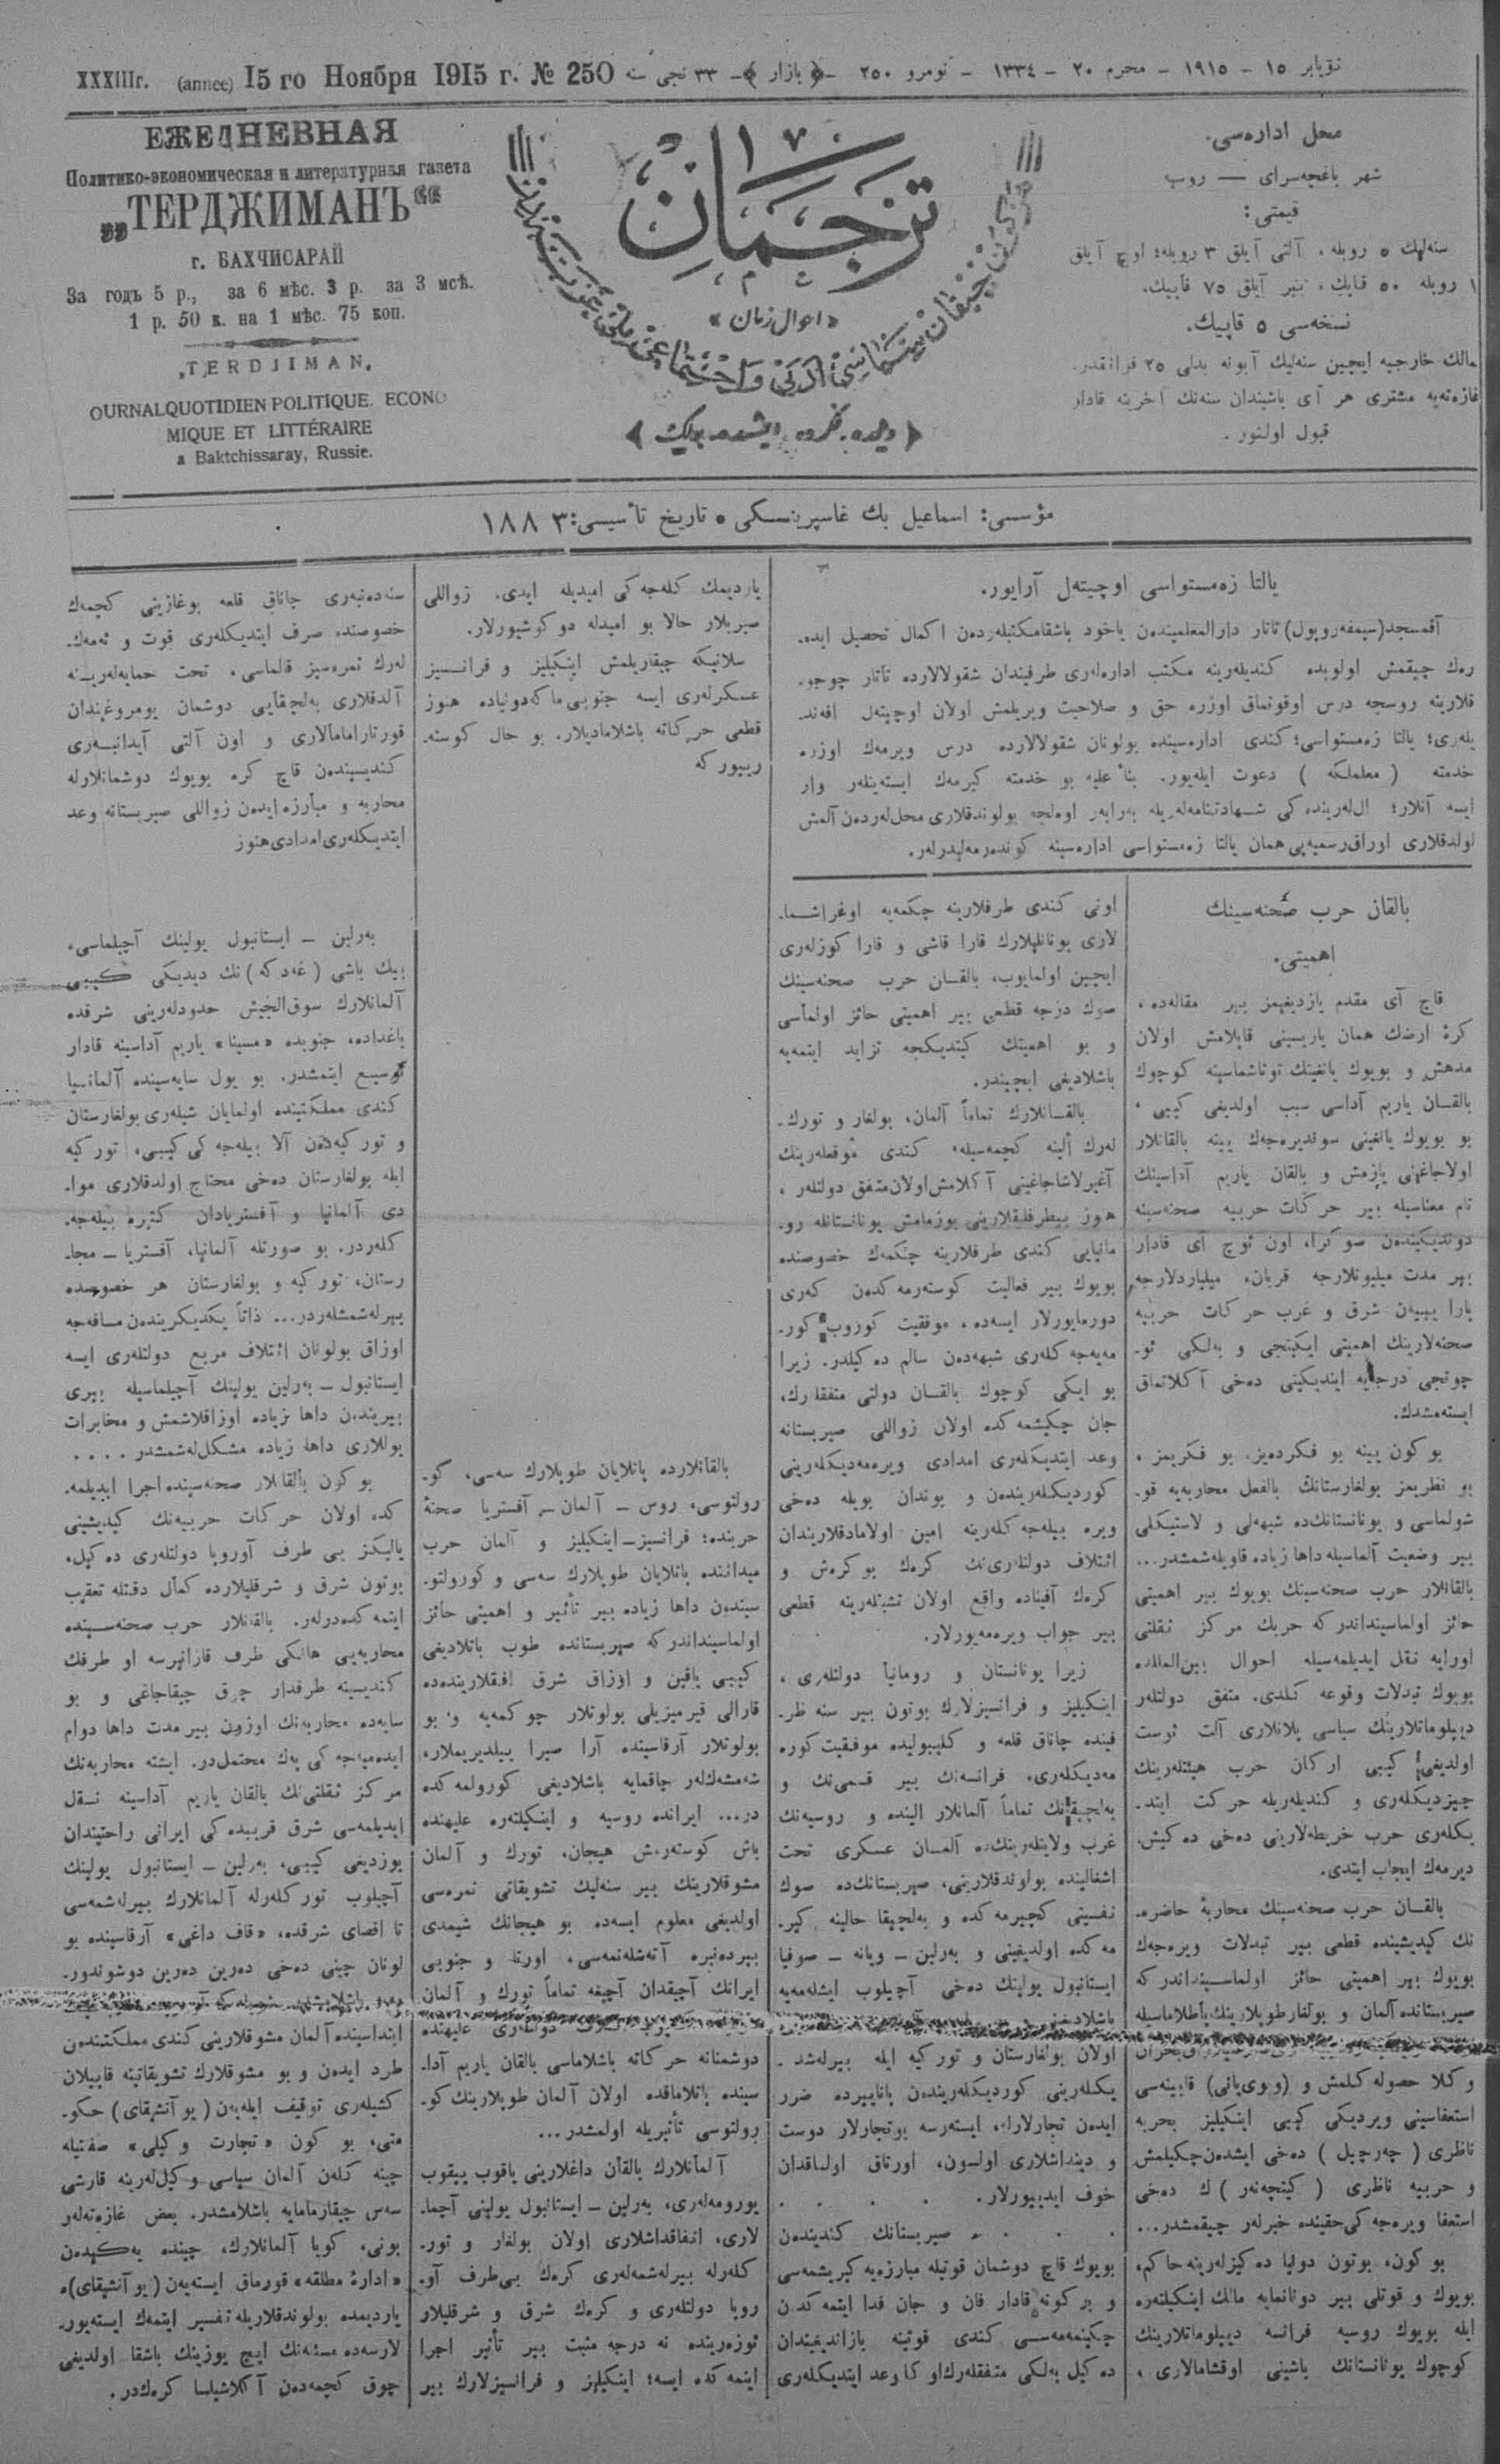 XXXIIIг. (annee) 15 го Ноября 1915 г. № 250
نویابر ١٥ – ١٩١٥ – محرم ٢٠ – ١٣٣٤ – نومرو ٢٥٠ –﴿ بازار ﴾– ٣٣ نجی سنه
ЕЖЕДНЕВНАЯ
Политико-экономическая и литературная газета
„ТЕРДЖИМАНЪ“
г. БАХЧИСАРАЙ
За годъ 5 р., за 6 мѣс. 3 р. за 3 мсѣ.
1 р. 50 к. на 1 мѣс. 75 коп.
„TERDJIMAN„
OURNALQUOTIDIEN POLITIQUE. ECONO
MIQUE ET LITTÉRAIRE
a Baktchissaray, Russie.
ترجمان
«احوال زمان»
محل اداره‌سی.
شهر باغچه‌سرای — روسـ
قیمتی:
سنه‌لیك ٥ روبله، آلتی آیلق ٣ روبله؛ اوچ آیلق
١ روبله ٥٠ قاپیك، بیر آیلق ٧٥ قاپیك.
نسخه‌سی ٥ قاپیك.
مالك خارجیه ایچین سنه‌لیك آبونه بدلی ٢٥ فرانقدر.
غازه‌ته‌یه مشتری هر آی باشیندان سنه‌نك آخرینه قادار
قبول اولنور.
مؤسسی: اسماعیل بك غاسپرینسكی • تاریخ تأسیسی: ١٨٨٣
یالتا زه‌مستواسی اوچیته‌ل آرایور.
آقمسجد (سیمفه‌روپول) تاتار دارالمعلمیندن یاخود باشقا مكتبلردن اكمال تحصیل ایده‌
ره‌ك چیقمش اولوبده كندیلرینه مكتب اداره‌لری طرفیندان شقولالارده تاتار چوجو‌
قلارینه روسجه درس اوقوتماق اوزره حق و صلاحیت ویریلمش اولان اوچیته‌ل افه‌ند‌
یله‌ری؛ یالتا زه‌مستواسی؛ كندی اداره‌سینده بولونان شقولالارده درس ویرمه‌ك اوزره
خدمته ( معلملكه ) دعوت ایله‌یور. بناءً علیه بو خدمته كیرمه‌ك ایسته‌ینله‌ر وار
ایسه آنلار؛ ال‌له‌رینده‌كی شهادتنامه‌له‌ریله به‌رابه‌ر اوه‌لجه بولوندقلاری محل‌له‌ردن آلمش
اولدقلاری اوراق رسمیه‌یی همان یالتا زه‌مستواسی اداره‌سینه كونده‌رمه‌لیدرله‌ر.
بالقان حرب صحنه‌سینك
اهمیتی.
قاچ آی مقدم یازدیغیمز بیر مقاله‌ده،
كرۀ ارضك همان یاریسینی قاپلامش اولان
مدهش و بویوك یانغینك توتاشماسینه كوچوك
بالقان یاریم آداسی سبب اولدیغی كیبی
بو بویوك یانغینی سوندیره‌جه‌ك یینه بالقانلار
اولاجاغینی یازمش و بالقان یاریم آداسینك
تام معناسیله بیر حركات حربیه صحنه‌سینه
دوندیكیندن صوكرا، اون ئوچ آی قادار
بیر مدت میلیونلارجه قربان، میلیاردلارجه
پارا ییین شرق و غرب حركات حربیه
صحنه‌لارینك اهمیتی ایكینجی و به‌لكی ئو‌
چونجی درجه‌یه ایندیكینی ده‌خی آكلاتماق
ایسته‌مشدك.
بو كون یینه بو فكرده‌یز. بو فكریمز،
بو نظریمز بولغارستانك بالفعل محاربه‌یه قو‌
شولماسی و یونانستانك‌ده شبهه‌لی و لاستیكلی
بیر وضعیت آلماسیله داها زیاده قاویله‌شمشدر...
بالقانلار حرب صحنه‌سینك بویوك بیر اهمیتی
حائز اولماسینداندر كه حربك مركز ثقلتی
اورایه نقل ایدیلمه‌سیله احوال بین‌المللده
بویوك تبدلات وقوعه كلدی. متفق دولتله‌ر
دیپلوماتلارینك سیاسی پلانلاری آلت ئوست
اولدیغی كیبی اركان حرب هیئتله‌رینك
چیزدیكله‌ری و كندیله‌ریله حركت ایتد‌
یكله‌ری حرب خریطه‌لارینی ده‌خی ده‌كیش‌
دیرمه‌ك ایجاب ایتدی.
بالقان حرب صحنه‌سینك محاربۀ حاضره‌
نك كیدیشینده قطعی بیر تبدلات ویره‌جه‌ك
بویوك بیر اهمیتی حائز اولماسینداندر كه
صیربستانده آلمان و بولغار طوپلارینك پاطلاماسیله
وكلا حصوله كلمش و (ویویانی) قابینه‌سی
استعفاسینی ویردیكی كیبی اینكیلیز بحریه
ناظری ( چه‌رچیل ) ده‌خی ایشدن چكیلمش
و حربیه ناظری ( كیتچه‌نه‌ر ) ك ده‌خی
استعفا ویره‌جه‌كی حقینده خبرله‌ر چیقمشدر...
بو كون، بوتون دونیا ده‌كیزله‌رینه حاكم،
بویوك و قوتلی بیر دونانمایه مالك اینكیلته‌ره
ایله بویوك روسیه فرانسه دیپلوماتلارینك
كوچوك یونانستانك باشینی اوقشامالاری،
اونی كندی طرفلارینه چكمه‌یه اوغراشما‌
لاری یونانلیلارك قارا قاشی و قارا كوزله‌ری
ایچین اولمایوب، بالقان حرب صحنه‌سینك
صوك درجه قطعی بیر اهمیتی حائز اولماسی
و بو اهمیتك كیتدیكجه تزاید ایتمه‌یه
باشلادیغی ایچیندر.
بالقانلارك تماماً آلمان، بولغار و تورك‌
له‌رك ألینه كچمه‌سیله، كندی موقعله‌رینك
آغیرلاشاجاغینی آكلامش اولان متفق دولتله‌ر،
هنوز بیطرفلیقلارینی بوزمامش یونانستانله رو‌
مانیایی كندی طرفلارینه چكمه‌ك خصوصنده
بویوك بیر فعالیت كوسته‌رمه‌كدن كه‌ری
دورمایورلار ایسه‌ده، موفقیت كوزوب كور‌
مه‌یه‌جه‌كله‌ری شبهه‌دن سالم ده‌كیلدر. زیرا
بو ایكی كوچوك بالقان دولتی متفقلارك،
جان چكیشمه‌كده اولان زواللی صیربستانه
وعد ایتدیكله‌ری امدادی ویره‌مه‌دیكله‌رینی
كوردیكله‌ریندن و بوندان بویله ده‌خی
ویره بیله‌جه‌كله‌رینه امین اولامادقلاریندان
ائتلاف دولتله‌ری‌نك كره‌ك بوكره‌ش و
كره‌ك آفیناده واقع اولان تشبثله‌رینه قطعی
بیر جواب ویره‌مه‌یورلار.
زیرا یونانستان و رومانیا دولتله‌ری،
اینكیلیز و فرانسیزلارك بوتون بیر سنه ظر‌
فینده چاناق قلعه و كلیبولیده موفقیت كوره
مه‌دیكله‌ری، فرانسه‌نك بیر قسمی‌نك و
به‌لچیقانك تماماً آلمانلار الینده و روسیه‌نك
غرب ولایتله‌رینك‌ده آلمان عسكری تحت
اشغالینده بولوندقلارینی، صیربستانك‌ده صوك
نفسینی كچیرمه‌كده و به‌لچیقا حالینه كیر‌
مه‌كده اولدیغینی و به‌رلین – ویانه – صوفیا
ایستانبول یولینك ده‌خی آچیلوب ایشله‌مه‌یه
باشلادیغنی
اولان بولغارستان و توركیه ایله بیرله‌شد‌
یكله‌رینی كوردیكله‌ریندن
ایدن تجارلاراـ، ایسته‌رسه بوتجارلار دوست
و دینداشلاری اولسون، اورتاق اولماقدان
خوف ایدییورلار. . . . .
صیربستانك كندیندن
بویوك قاچ دوشمان قوتیله مبارزه‌یه كیریشمه‌سی
و بر كونه قادار قان و جان فدا ایتمه‌كدن
چكینمه‌مه‌سی كندی قوتینه یازاندیغیندان
ده‌كیل به‌لكی متفقله‌رك اوكا وعد ایتدیكله‌ری
یاردیمك كله‌جه‌كی امیدیله ایدی. زواللی
صیربلار حالا بو امیدله دوكوشیورلار.
سلانیكه چیقاریلمش اینكیلیز و فرانسیز
عسكرله‌ری ایسه جنوبی ماكه‌دونیاده هنوز
قطعی حركاته باشلامادیلار. بو حال كوسته‌
رییور كه
بالقانلارده پاتلایان طوپلارك سه‌سی، كو‌
رولتوسی، روس – آلمان – آفستریا صحنۀ
حربنده؛ فرانسیز–اینكیلیز و آلمان حرب
میداننده پاتلایان طوپلارك سه‌سی و كورولتو‌
سیندن داها زیاده بیر تأثیر و اهمیتی حائز
اولماسینداندر كه صیربستانده طوپ پاتلادیغی
كیبی یاقین و اوزاق شرق افقلارینده‌ده
قارالی قیرمیزیلی بولوتلار چوكمه‌یه و بو
بولوتلار آرقاسینده آرا صیرا ییلدیریملار،
شه‌مشه‌كله‌ر چاقمایه باشلادیغی كورولمه‌كده
در... ایرانده روسیه و اینكیلته‌ره علیهنده
باش كوسته‌رمش هیجان، تورك و آلمان
مشوقلارینك بیر سنه‌لیك تشویقاتی ثمره‌سی
اولدیغی معلوم ایسه‌ده بو هیجانك شیمدی
بیردنبیره آته‌شله‌نمه‌سی، اورتا و جنوبی
ایرانك آچیقدان آچیغه تماماً تورك و آلمان
دوشمنانه حركاته باشلاماسی بالقان یاریم آدا‌
سینده پاتلاماقده اولان آلمان طوپلارینك كو‌
رولتوسی تأثیریله اولمشدر...
آلمانلارك بالقان داغلارینی یاقوب ییقوب
یورومه‌له‌ری، به‌رلین – ایستانبول یولینی آچما‌
لاری، اتفاقداشلاری اولان بولغار و تور‌
كله‌رله بیرله‌شمه‌له‌ری كره‌ك بی‌طرف آو‌
روپا دولتله‌ری و كره‌ك شرق و شرقلیلار
ئوزه‌رینده نه درجه مثبت بیر تأثیر اجرا
ایتمه‌كده ایسه؛ اینكیلیز و فرانسیزلارك بیر
سنه‌دنبه‌ری چاناق قلعه بوغازینی كچمه‌ك
خصوصنده صرف ایتدیكله‌ری قوت و ئه‌مه‌ك‌
له‌رك ثمره‌سیز قالماسی، تحت حمایه‌له‌رینه
آلدقلاری به‌لچیقایی دوشمان یومروغیندان
قورتارامامالاری و اون آلتی آیدانبه‌ری
كندیسیندن قاچ كره بویوك دوشمانلارله
محاربه و مبارزه ایدن زواللی صیربستانه وعد
ایتدیكله‌ری امدادی هنوز
به‌رلین – ایستانبول یولینك آچیلماسی،
بیك باشی (غه‌دكه) نك دیدیكی كیبی
آلمانلارك سوق الجیش حدودله‌رینی شرقده
باغداده، جنوبده «سینا» یاریم آداسینه قادار
توسیع ایتمشدر. بو یول سایه‌سینده آلمانیا
كندی مملكتینده اولمایان شیله‌ری بولغارستان
و توركیه‌دن آلا بیله‌جه‌كی كیبی، توركیه
ایله بولغارستان ده‌خی محتاج اولدقلاری موا‌
دی آلمانیا و آفستریادان كتیره بیله‌جه‌
كله‌ردر. بو صورتله آلمانیا، آفستریا – مجا‌
رستان، توركیه و بولغارستان هر خصوصده
بیرله‌شمشله‌ردر... ذاتاً یكدیكریندن مسافه‌جه
اوزاق بولونان ائتلاف مربع دولتله‌ری ایسه
ایستانبول – به‌رلین یولینك آچیلماسیله بیری
بیریندن داها زیاده اوزاقلاشمش و مخابرات
یوللاری داها زیاده مشكل‌له‌شمشدر . . . .
بو كون بالقانلار صحنه‌سینده اجرا ایدیلمه‌
كده اولان حركات حربیه‌نك كیدیشینی
یالیكز بی طرف آوروپا دولتله‌ری ده‌كیل،
بوتون شرق و شرقلیلارده كمال دقتله تعقیب
ایتمه‌كده‌درله‌ر. بالقانلار حرب صحنه‌سینده
محاربه‌یی هانكی طرف قازانیرسه او طرفك
كندیسینه طرفدار چوق چیقاجاغی و بو
سایه‌ده محاربه‌نك اوزون بیر مدت داها دوام
ایده‌میه‌جه‌كی پك محتمل‌در. ایشته محاربه‌نك
مركز ثقلتی‌نك بالقان یاریم آداسینه نقل
ایدیلمه‌سی شرق قریبده‌كی ایرانی راحتیندان
بوزدیغی كیبی، به‌رلین – ایستانبول یولینك
آچیلوب توركله‌رله آلمانلارك بیرله‌شمه‌سی
تا اقصای شرقده، «قاف داغی» آرقاسینده بو
لونان چینی ده‌خی ده‌رین ده‌رین دوشوندور‌
ابتداسینده آلمان مشوقلارینی كندی مملكتندن
طرد ایدن و بو مشوقلارك تشویقاتینه قاپیلان
كشیله‌ری توقیف ایله‌ین (یوآنشیقای) حكو‌
متی، بو كون «تجارت وكیلی» صفتیله
چینه كله‌ن آلمان سیاسی وكیل‌له‌رینه قارشی
سه‌س چیقارمامایه باشلامشدر. بعض غازه‌ته‌له‌ر
بونی، كویا آلمانلارك، چینده یه‌كیدن
«ادارۀ مطلقه» قورماق ایسته‌ین (یوآنشیقای)ه
یاردیمده بولوندقلاریله تفسیر ایتمه‌ك ایسته‌یور‌
لارسه‌ده مسئله‌نك ایچ یوزینك باشقا اولدیغی
چوق كچمه‌دن آكلاشیلسا كره‌كدر.